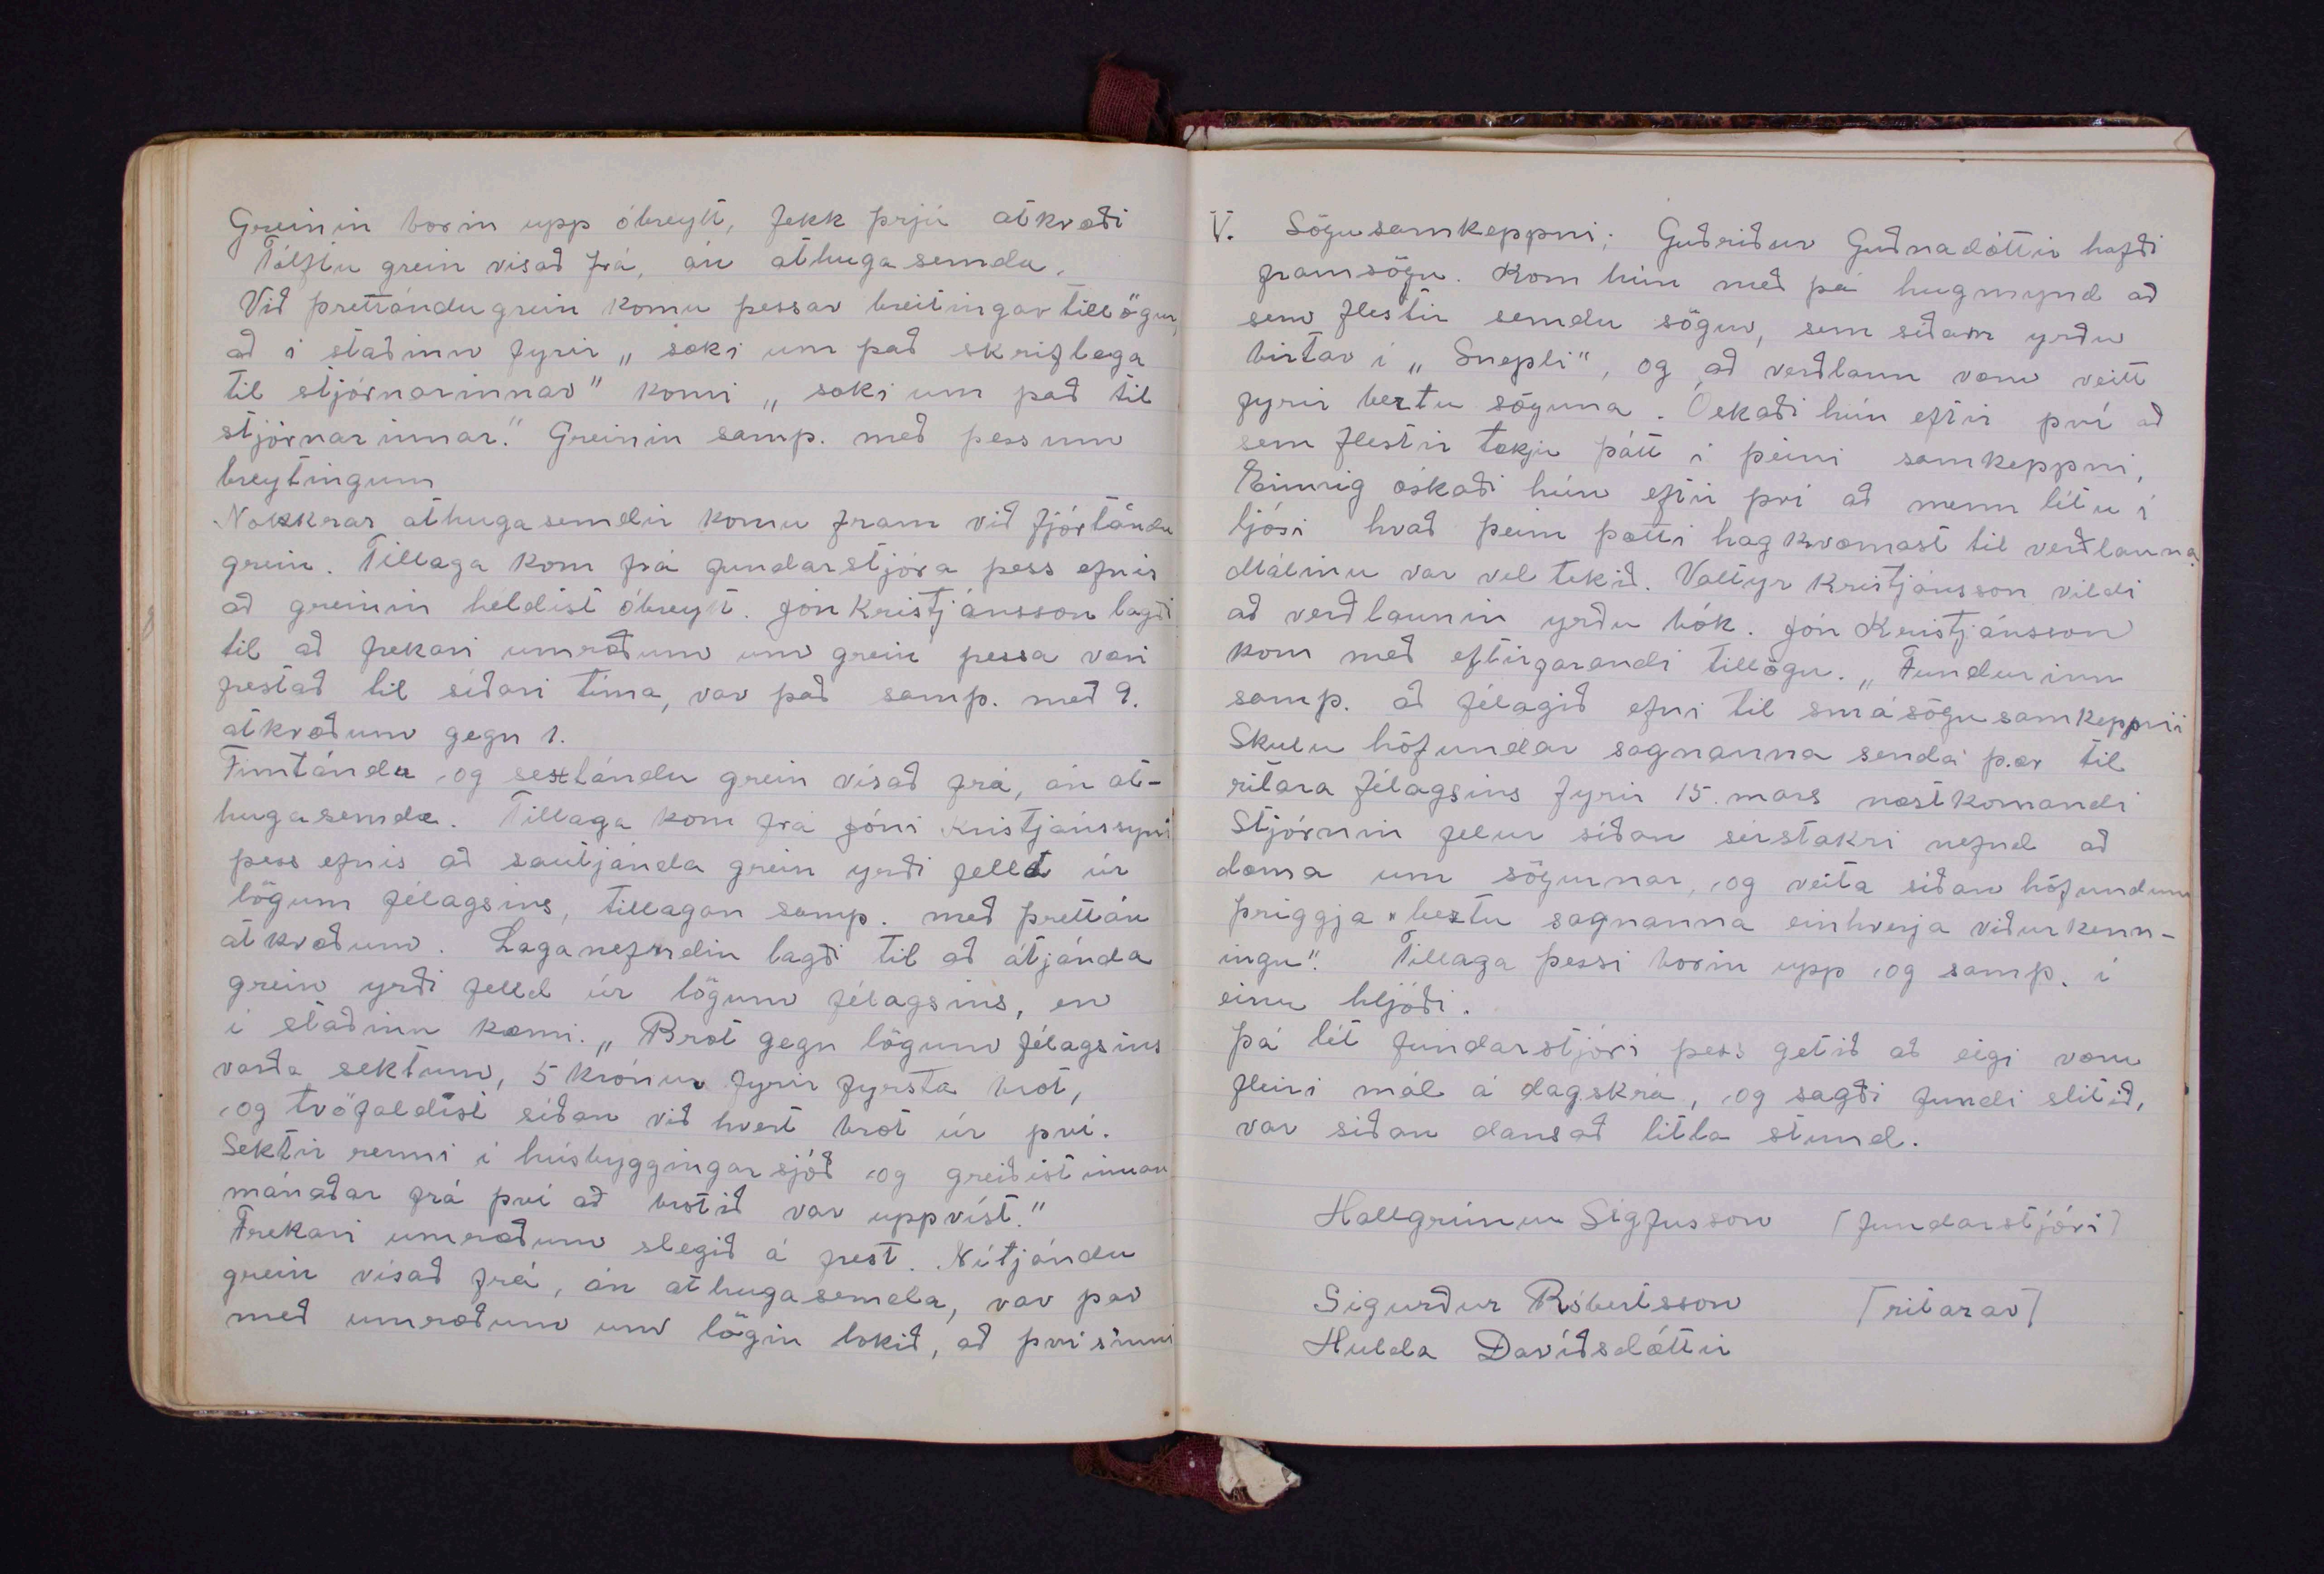 Greinin borin upp óbreytt, fekk þrjú atkvæði
Tólftu grein vísað frá, án athugasemda.
Við þrettándu grein komu þessar breitingartillögur,
að í staðinn fyrir „ sæki um það skriflega
til stjórnarinnar" komi „ sæki um það til
stjórnarinnar." Greinin samþ. með þessum
breytingum
Nokkrar athugasemdir komu fram við fjórtándu
grein. Tillaga kom frá fundarstjóra þess efnis
að greinin heldist óbreytt. Jón Kristjánsson lagði
til að frekari umræðum um grein þessa væri
frestað til síðari tíma, var það samþ. með 9.
atkvæðum gegn 1.
Fimtándu og sextándu grein vísað frá, án at-
hugasemda. Tillaga kom frá Jóni Kristjánssyni
þess efnis að sautjánda grein yrði felld úr
lögum félagsins, tillagan samþ. með þrettán
atkvæðum. Laganefndin lagði til að átjánda
grein yrði felld úr lögum félagsins, en
í staðinn kæmi. „ Brot gegn lögum félagsins
varða sektum, 5 krónur fyrir fyrsta brot,
og tvöfaldist síðan við hvert brot úr því.
Sektir renni í húsbyggingarsjóð og greiðist innan
mánaðar frá því að brotið var uppvíst."
Frekari umræðum slegið á frest. Nítjándu
grein vísað frá, án athugasemda, var þar
með umræðum um lögin lokið, að því sinni
V. Sögusamkeppni; Guðríður Guðnadóttir hafði
framsögu. Kom hún með þá hugmynd að
sem flestir semdu sögur, sem síðar yrðu
birtar í „ Snepli", og að verðlaun væru veitt
fyrir beztu söguna. Óskaði hún eftir því að
sem flestir tækju þátt í þeirri samkeppni,
Einnig óskaði hún eftir því að menn létu í
ljósi hvað þeim þætti hagkvæmast til verðlauna.
Málinu var vel tekið. Valtýr Kristjánsson vildi
að verðlaunin yrðu bók. Jón Kristjánsson
kom með eftirfarandi tillögu. „ Fundurinn
samþ. að félagið efni til smásögusamkeppni
Skulu höfundar sagnanna senda þær til
ritara félagsins fyrir 15. mars næstkomandi
Stjórnin felur síðan sérstakri nefnd að
dæma um sögurnar, og veita síðan höfundum
þriggja beztu sagnanna einhverja viðurkenn-
ingu". Tillaga þessi borin upp og samþ. í
einu hljóði.
Þá lét fundarstjóri þess getið að eigi væru
fleiri mál á dagskrá, og sagði fundi slitið,
var síðan dansað litla stund.
Hallgrímur Sigfússon [fundarstjóri]
Sigurður Róbertsson [ritarar]
Hulda Davíðsdóttir